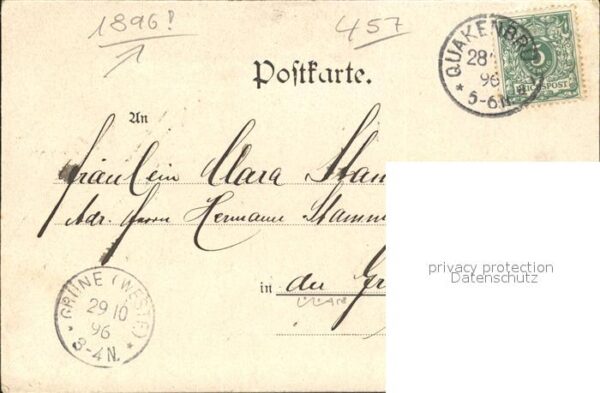 1896!
457
QUAKENBRÜ
28
96
5-6N.
REICHSPOST
Postkarte.
An
Fräulein Clara Stam
Adr. Herrn Hermann Stamm
in der Gr
GRÜNE (WESTF.)
29 10
96
3-4N.
privacy protection
Datenschutz